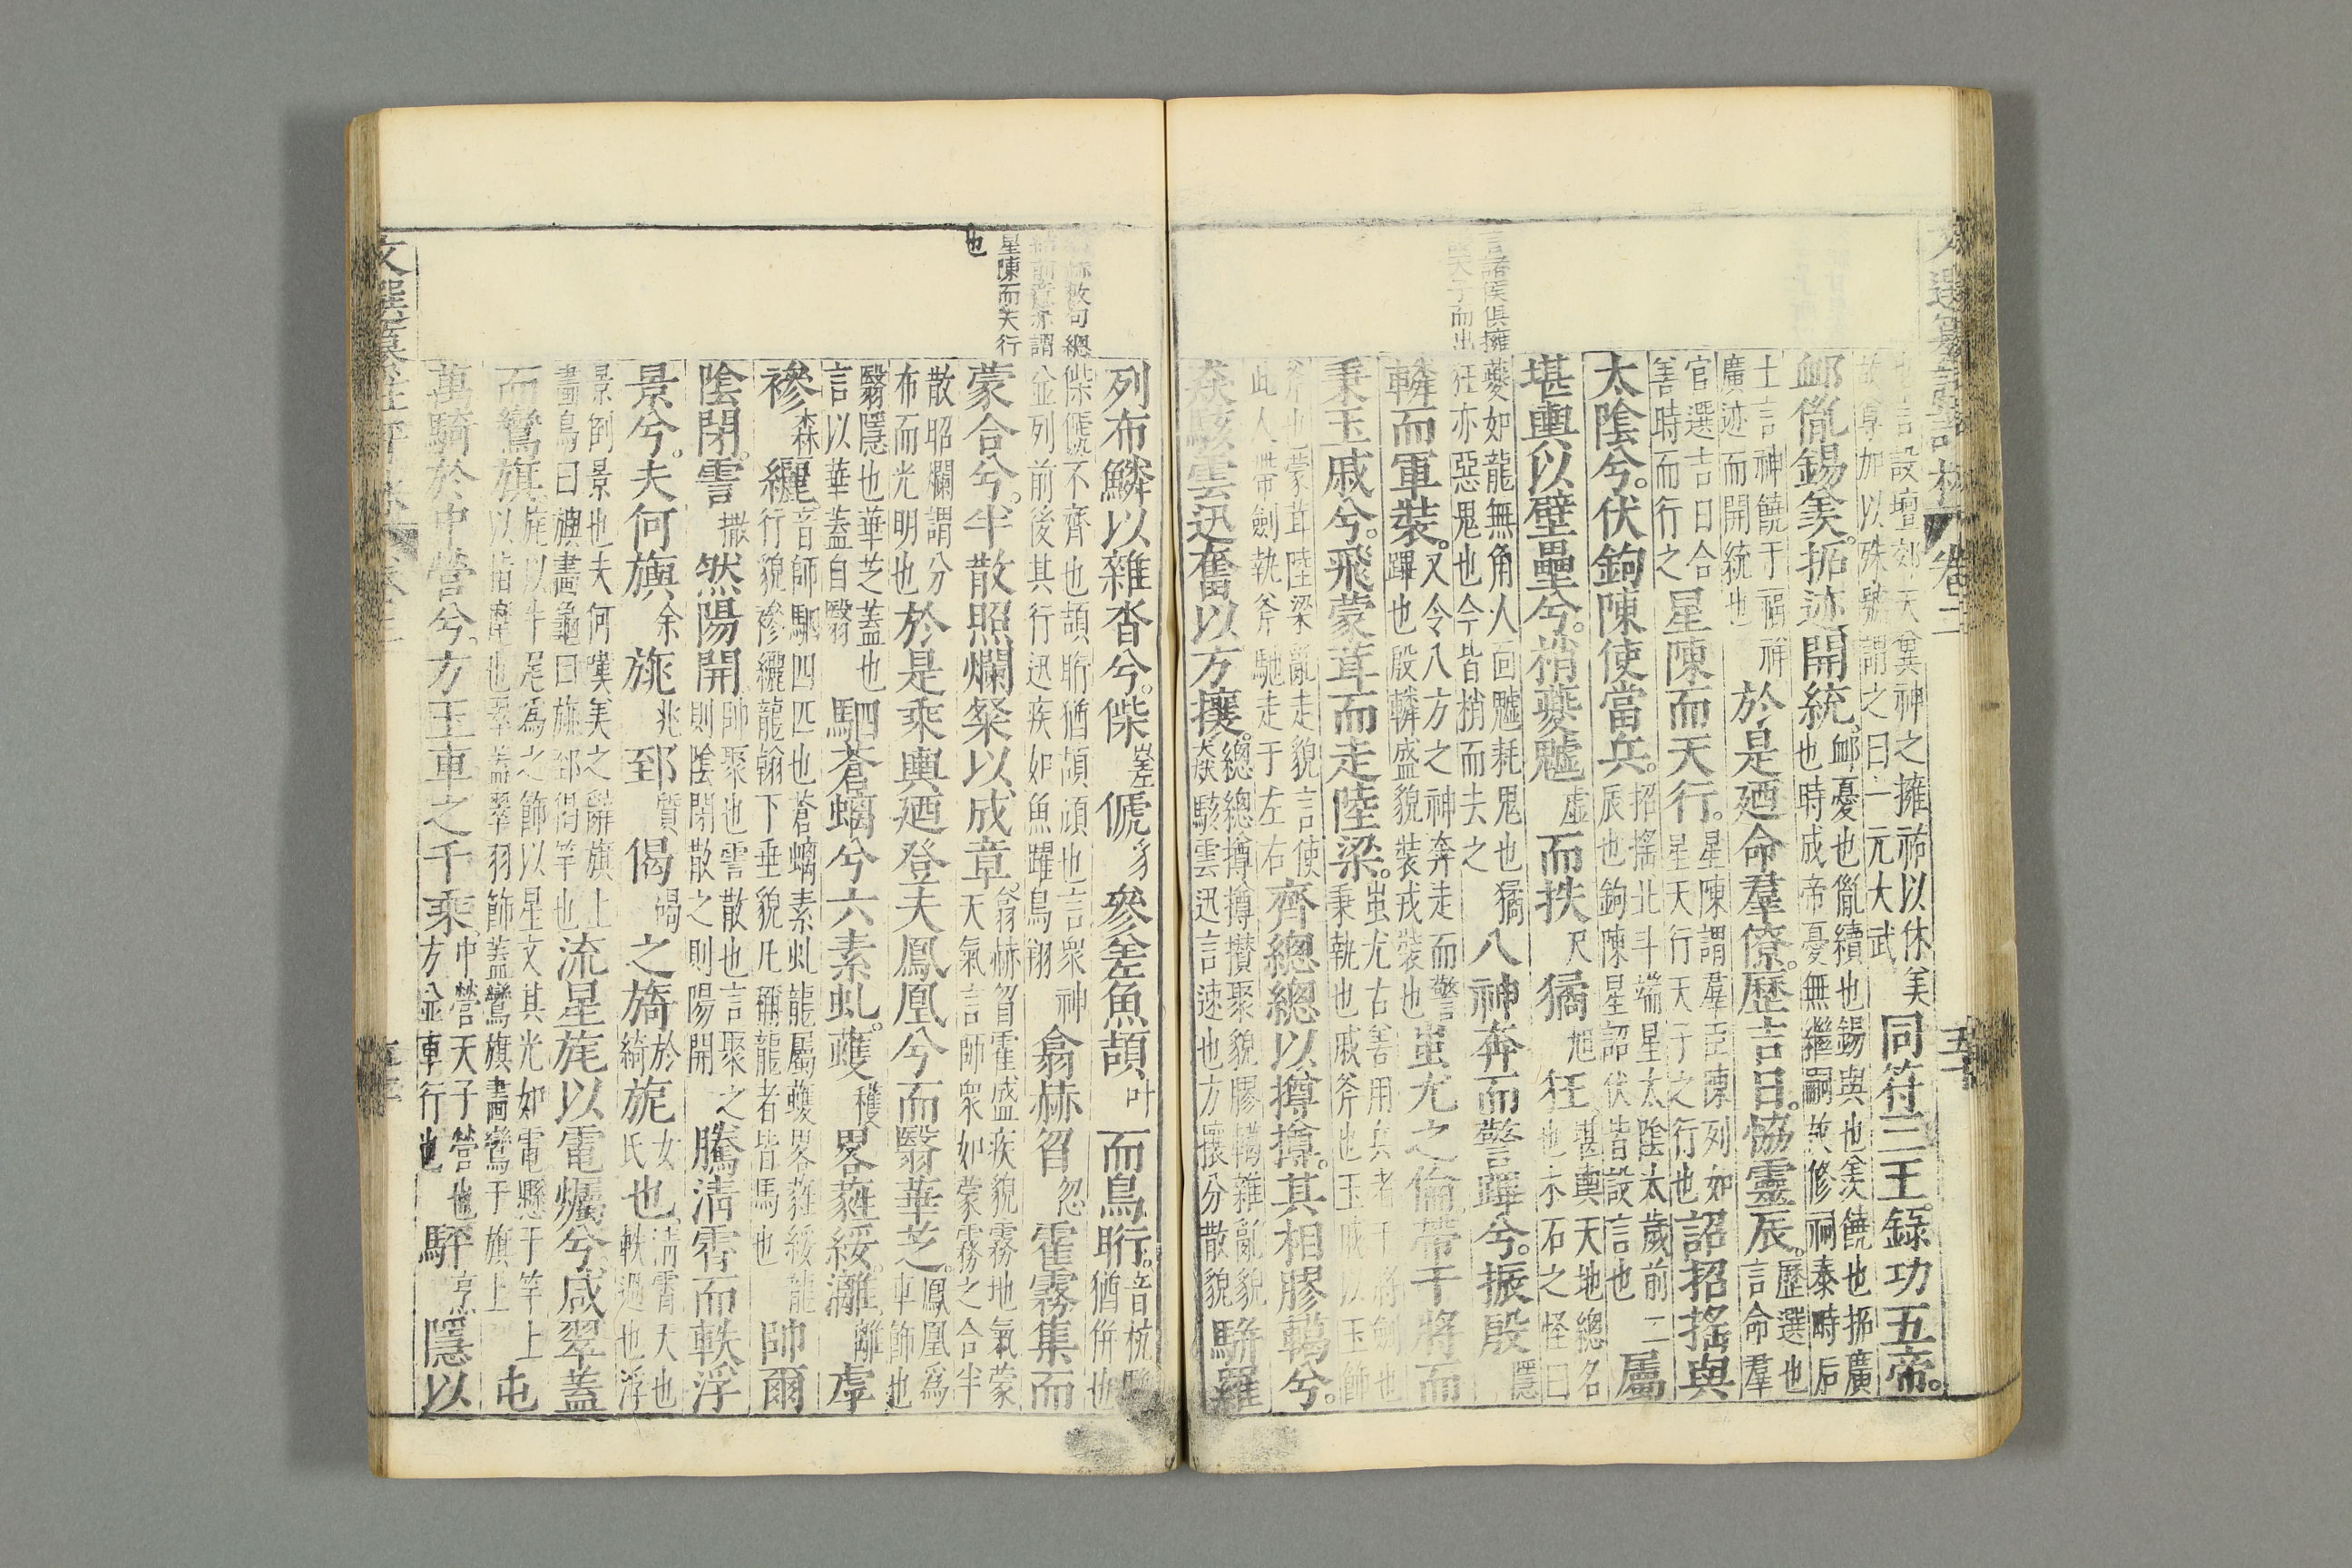 文選纂註評林 卷二 五十
言諸侯俱擁
天子而出
也言設壇郊天冀神之擁祐以休美 同符三王。錄功五帝。
故尊加以殊號謂之曰上元大武
卹胤錫羨。拓迹開統。卹憂也胤續也錫與也羨饒也拓廣
也時成帝憂無繼嗣故修祠泰畤后
土言神饒于福祥
廣迹而開統也 於是廼命羣僚。歷吉日。協靈辰。歷選也
言命羣
官選吉日合
善時而行之 星陳而天行。星陳謂羣臣陳列如
星天行天子之行也 詔招搖與
太陰兮。伏鉤陳使當兵。招搖北斗端星太陰太歲前二
辰也鉤陳星詔伏皆設言也 屬
堪輿以壁壘兮。梢夔魖虛而抶尺獝旭狂。堪輿天地總名
也木石之怪曰
夔如龍無角人面魖耗鬼也獝
狂亦惡鬼也今皆梢而去之 八神奔而警蹕兮。振殷隱
轔而軍裝。又令八方之神奔走而警
蹕也殷轔盛貌裝戎裝也 蚩尤之倫帶干將而
秉玉戚兮。飛蒙茸而走陸梁。蚩尤古善用兵者干將劍也
秉執也戚斧也玉戚以玉飾
斧也蒙茸陸梁亂走貌言使
此人帶劍執斧馳走于左右 齊總總以撙撙。其相膠轕兮。
猋駭雲迅奮以方攘。總總撙撙攅聚貌膠轕雜亂貌
猋駭雲迅言速也方攘分散貌 駢羅
柴數句總
結前意亦謂
星陳而天行
也
列布鱗以雜沓兮。傑差傂豸參差魚頡叶而鳥䀪。音杭
猶併也
傑傂不齊也頡䀪猶頡頏也言衆神
並列前後其行迅疾如魚躍鳥翔 翕赫曶忽霍霧集而
蒙合兮。半散照爛粲以成章。翕赫曶霍盛疾貌霧地氣蒙
天氣言帥衆如蒙霧之合半
散昭爛謂分
布而光明也 於是乘輿廼登夫鳳凰兮而翳華芝。鳳凰爲
車飾也
翳隱也華芝蓋也
言以華蓋自翳也 駟蒼螭兮六素虬。蠖穫畧蕤綏。灕離虖
襂森纚。音師駟四匹也蒼螭素虬龍屬蠖畧蕤綏龍
行貌襂纚龍翰下垂貌凡稱龍者皆馬也 帥爾
陰閉。霅撒然陽開。帥聚也霅散也言聚之
則陰閉散之則陽開 騰淸霄而軼浮
景兮。夫何旟余旐兆郅質偈碣之旖於綺旎女氏也。淸霄天也
軼過也浮
景倒景也夫何嘆美之辭旗上
畫鳥曰旟畫龜曰旐郅偈竿也 流星旄以電爥兮。咸翠蓋
而鸞旗。旄以牛尾爲之飾以星文其光如電懸于竿上
以指麾也翠蓋翠羽飾蓋鸞旗畫鸞于旗上 屯
萬騎於中營兮。方玉車之千乘。中營天子營也
方並車行也 駍亨隱以
文選纂註評林 卷二